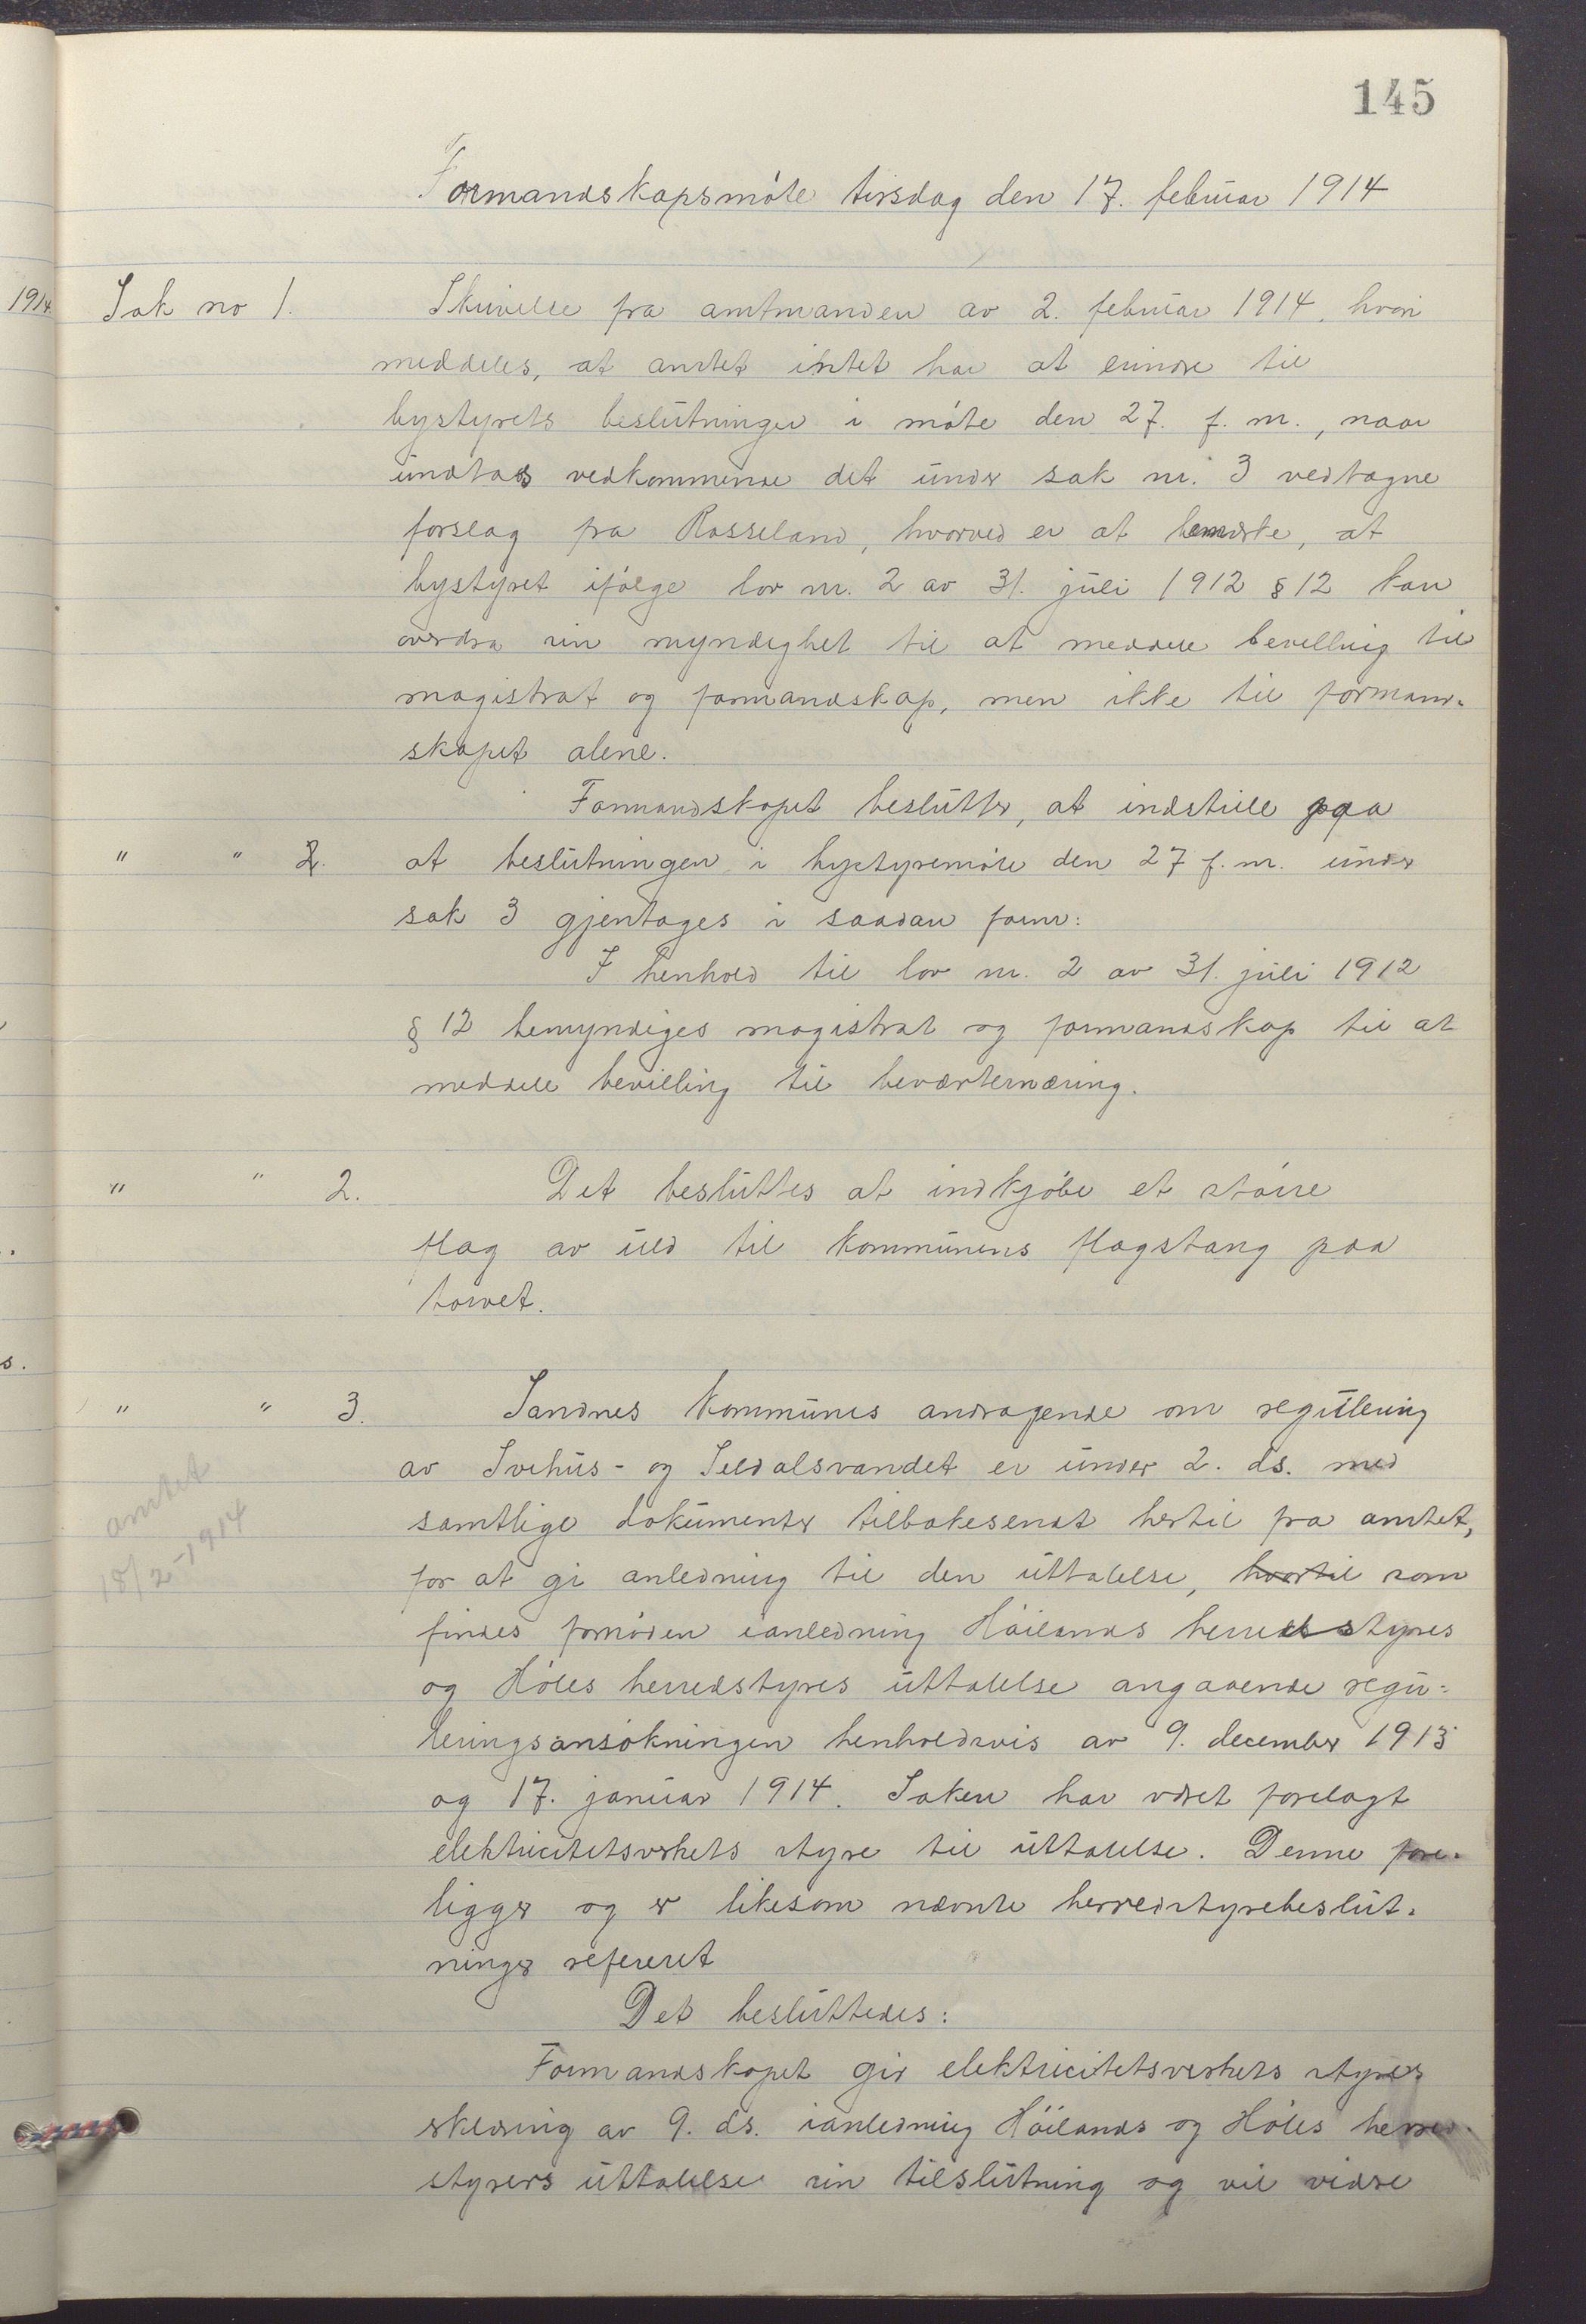 145
Formandskapsmöte tirsdag den 17. februar 1914
1914
Sak no 1. Skrivelse fra amtmanden av 2. februar 1914, hvori
meddeles, at amtet intet har at erindre til
bystyrets beslutninger i möte den 27. f. m., naar
undtas vedkommende det under sak nr. 3 vedtagne
forslag fra Rosseland, hvorved er at bemerke, at
bystyret ifölge lov nr. 2 av 31. juli 1912 § 12 kan
overdra sin myndighet til at meddele bevilling til
magistrat og formandskap, men ikke til formand-
skapet alene.
Formandskapet beslutter, at indstille paa
" " 2. at beslutningen i bystyremöte den 27 f. m. under
sak 3 gjentages i saadan form:
I henhold til lov nr. 2 av 31. juli 1912
§ 12 bemyndiges magistrat og formandskap til at
meddele bevilling til beværternæring.
" " 2. Det besluttes at indkjöbe et större
flag av uld til kommunens flagstang paa
torvet.
s.
" " 3. Sandnes kommunes andragende om regulering
av Svihus- og Seldalsvandet er under 2. ds. med
amtet
18/2-1914
samtlige dokumenter tilbakesendt hertil fra amtet,
for at gi anledning til den uttalelse, hvortil som
findes fornöden ianledning Höilands herredsstyres
og Höles herredstyres uttalelse angaaende regu-
leringsansökningen henholdsvis av 9. december 1913
og 17. januar 1914. Saken har været forelagt
elektricitetsverkets styre til uttalelse. Denne fore-
ligger og er likesom nævnte herredstyrebeslut-
ninger refereret
Det besluttedes:
Formandskapet gir elektricitetsverkets styres
erklæring av 9. ds. ianledning Höilands og Höles herred-
styrers uttalelse sin tilslutning og vil videre